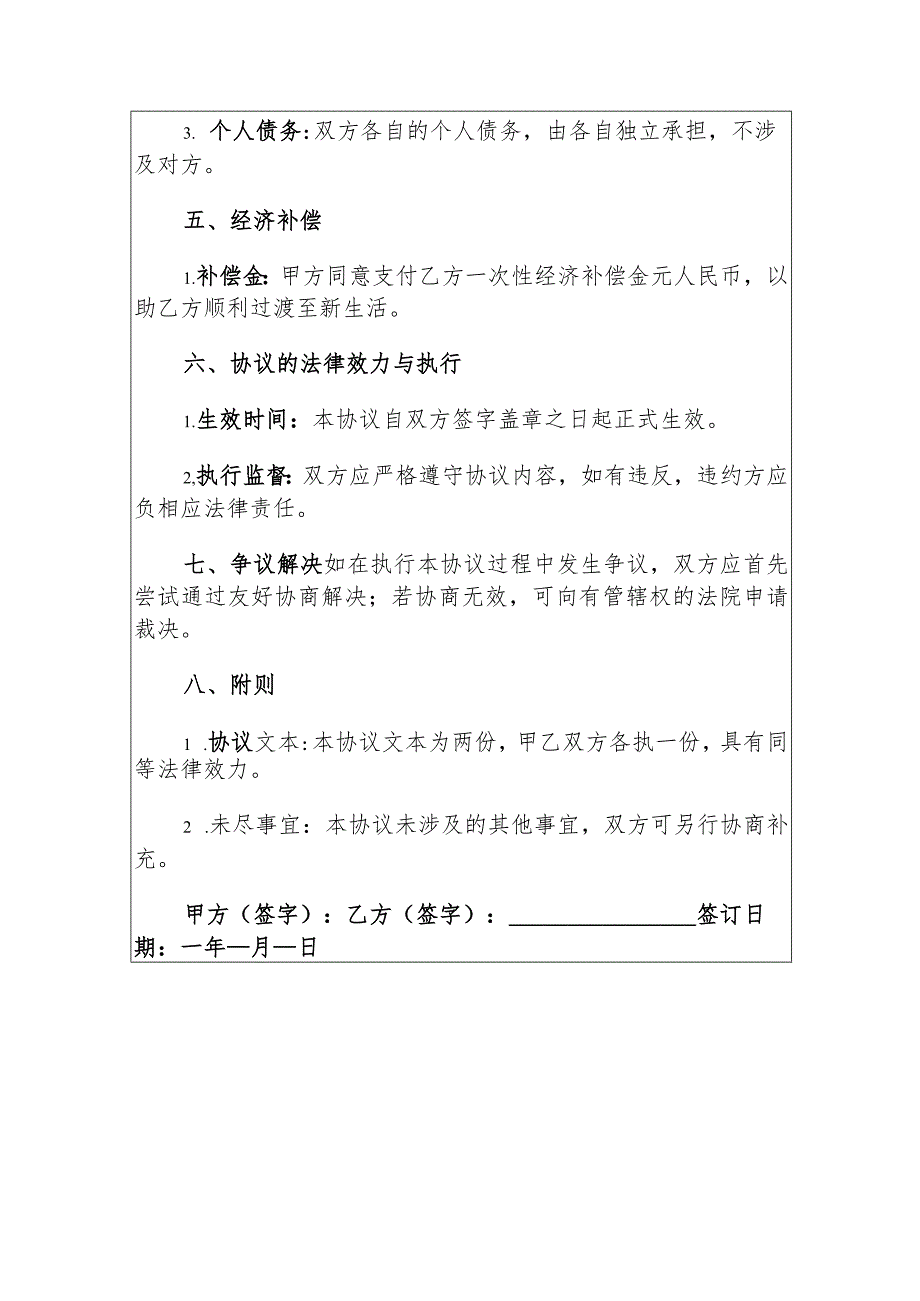 3. 个人债务:双方各自的个人债务，由各自独立承担，不涉
及对方。
五、经济补偿
1.补偿金：甲方同意支付乙方一次性经济补偿金元人民币，以
助乙方顺利过渡至新生活。
六、协议的法律效力与执行
1.生效时间：本协议自双方签字盖章之日起正式生效。
2,执行监督：双方应严格遵守协议内容，如有违反，违约方应
负相应法律责任。
七、争议解决如在执行本协议过程中发生争议，双方应首先
尝试通过友好协商解决；若协商无效，可向有管辖权的法院申请
裁决。
八、附则
1 .协议文本:本协议文本为两份，甲乙双方各执一份，具有同
等法律效力。
2 .未尽事宜：本协议未涉及的其他事宜，双方可另行协商补
充。
甲方（签字）：乙方（签字）：________________签订日
期：一年—月—日